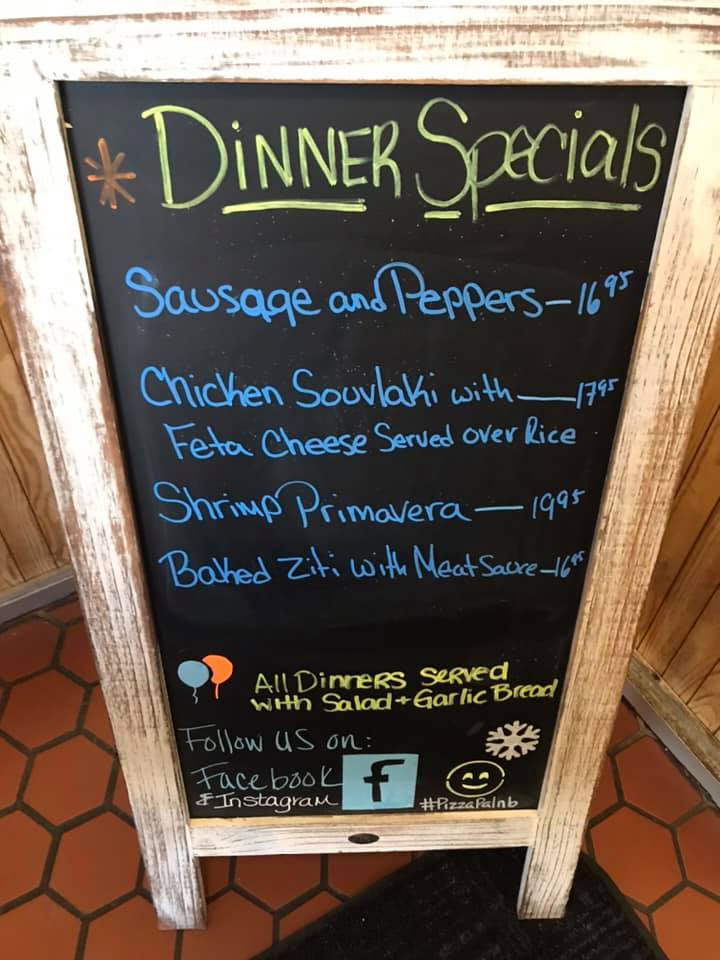 * Dinner Specials
Sausage and Peppers - 16 95
Chicken Souvlaki with - 17 95
Feta Cheese Served over Rice
Shrimp Primavera - 19 95
Baked Ziti with Meat Sauce - 16 95
All Dinners Served
with Salad + Garlic Bread
Follow us on:
Facebook f
& Instagram #PizzaPalnb